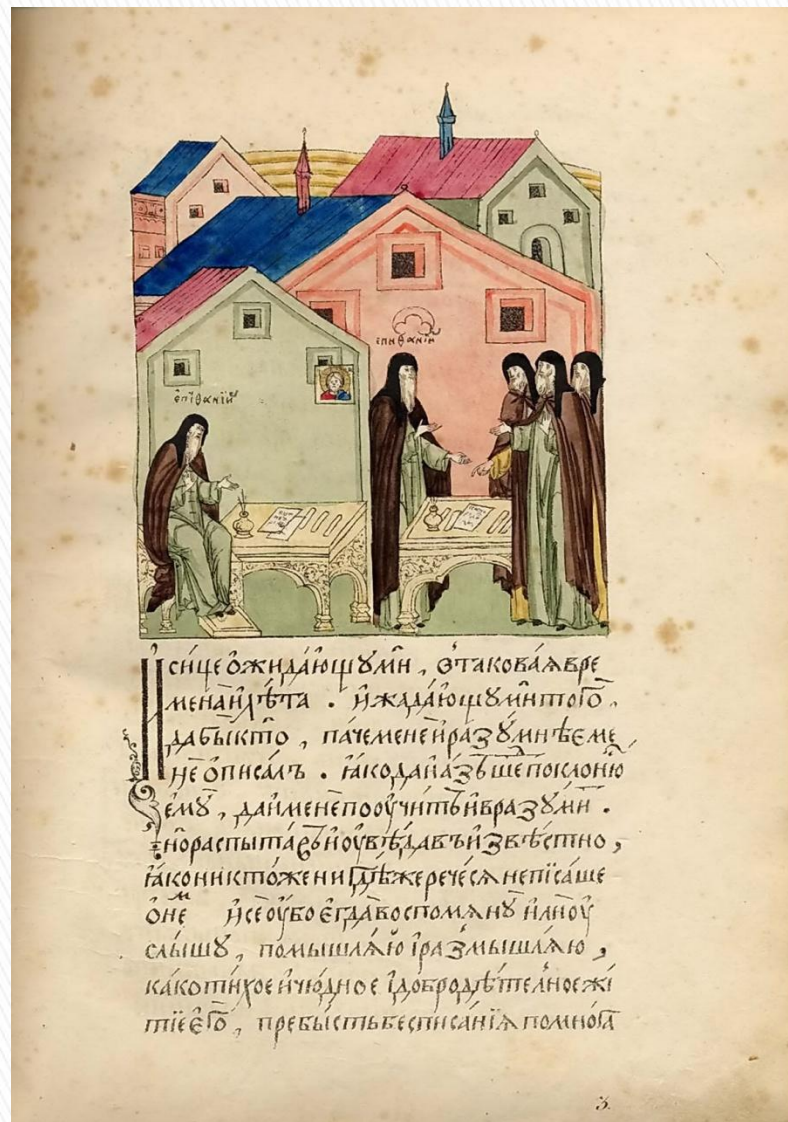 епиѳаній
епиѳаній
И си́це ѻ҆жида́ющꙋ ми , в таковаѧ вре
мена̀ и҆ лѣ́та . и҆ жада́ющꙋ ми того̀ ,
дабы кто̀ , па́че менѐ и҆ разꙋ́мнѣе ме
не ѻ҆писа́лъ . ꙗ҆́ко да и҆ а҆зъ ше поклоню̀
є҆мꙋ̀ , да и҆ менѐ поѹчи́тъ и҆ вразꙋми .
но распыта́въ и҆ ѹ҆вѣ́давъ и҆звѣ́стно ,
ꙗ҆́ко никто́же нигдѣ́же рече́сѧ не пїса́ше
ѻ҆ неⷨ и҆ сѐ ѹ҆бо є҆гда̀ воспомѧнꙋ̀ и҆лѝ ѹ҆
слы́шꙋ , помышлѧ́ю і҆ размышлѧ́ю ,
ка́ко ти́хое и҆ чю́дное і҆ добродѣ́телное жи
тїе є҆го̀ , пребы́сть бес писа́нїѧ по мно́га
3.